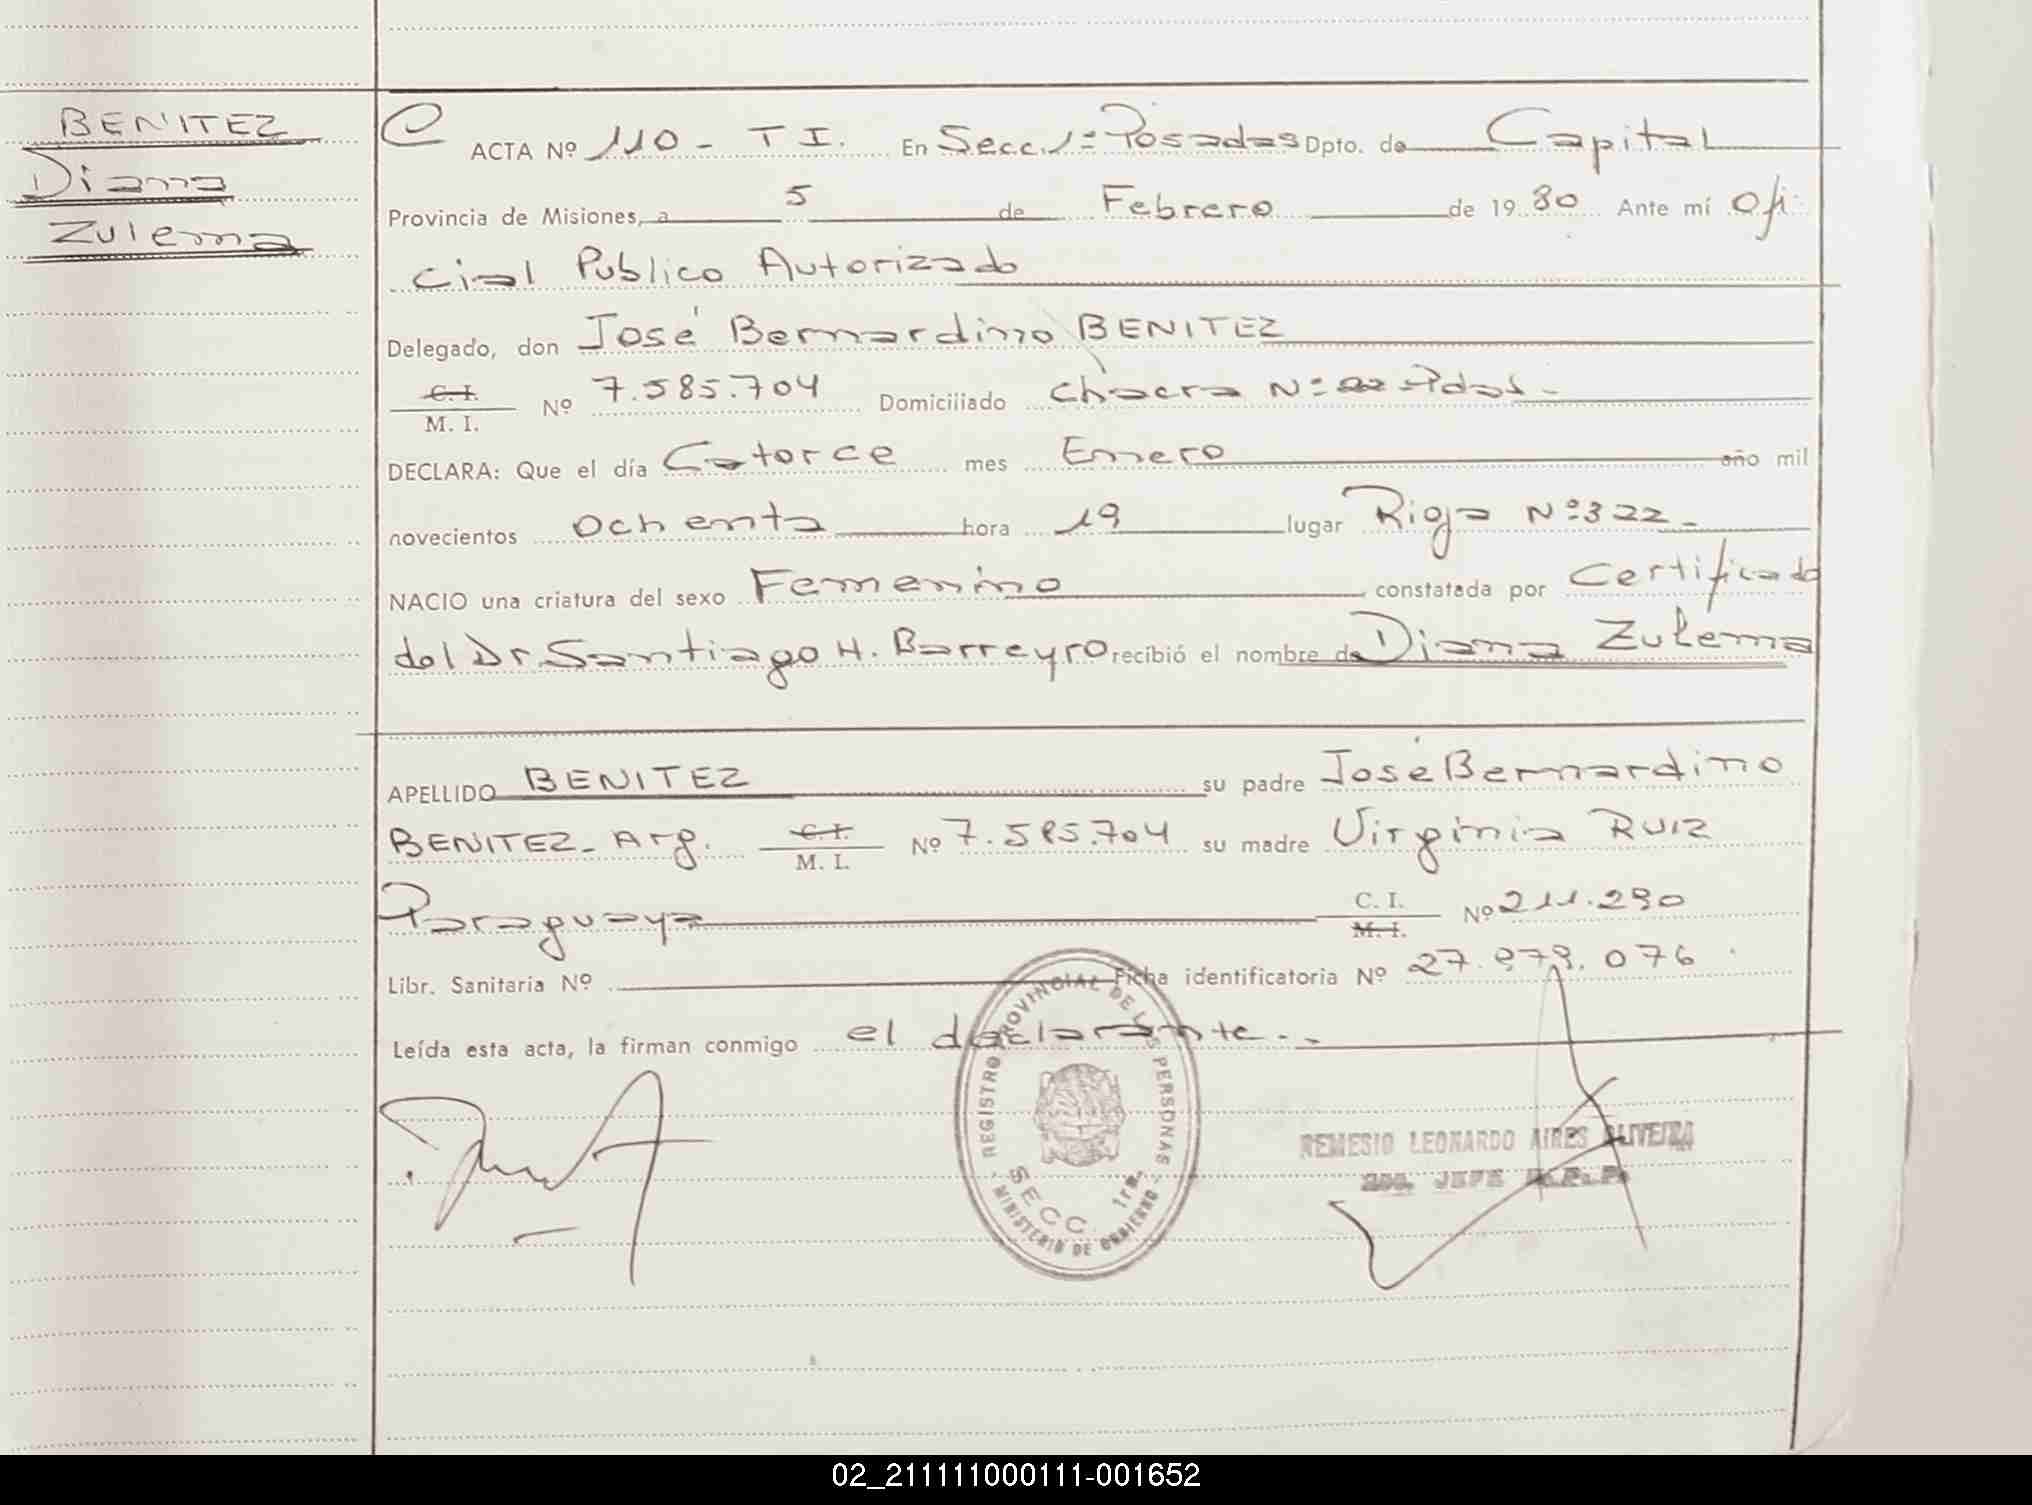 BENITEZ
Diana
Zulema
ACTA Nº 110 - T I. En Secc. 1ª Posadas Dpto. de Capital
Provincia de Misiones, a 5 de Febrero de 1980 Ante mí Ofi
cial Publico Autorizado
Delegado, don José Bernardino BENITEZ
C. I.
M. I. Nº 7.585.704 Domiciliado Chacra Nº Pdas.-
DECLARA: Que el día Catorce mes Enero año mil
novecientos ochenta hora 19 lugar Rioja Nº 322-
NACIO una criatura del sexo Femenino constatada por Certificado
del Dr. Santiago H. Barreyro recibió el nombre de Diana Zulema
APELLIDO BENITEZ su padre José Bernardino
BENITEZ- Arg. C. I. M. I. Nº 7.585.704 su madre Virginia RUIZ
Paraguaya C. I. M. I. Nº 211.290
Libr. Sanitaria Nº Ficha identificatoria Nº 27.979.076
Leída esta acta, la firman conmigo el declarante.-
REGISTRO PROVINCIAL DE LAS PERSONAS
SECC. 1ra.
MINISTERIO DE GOBIERNO
REMESIO LEONARDO AIRES OLIVEIRA
JEFE R.P.P.
02_211111000111-001652